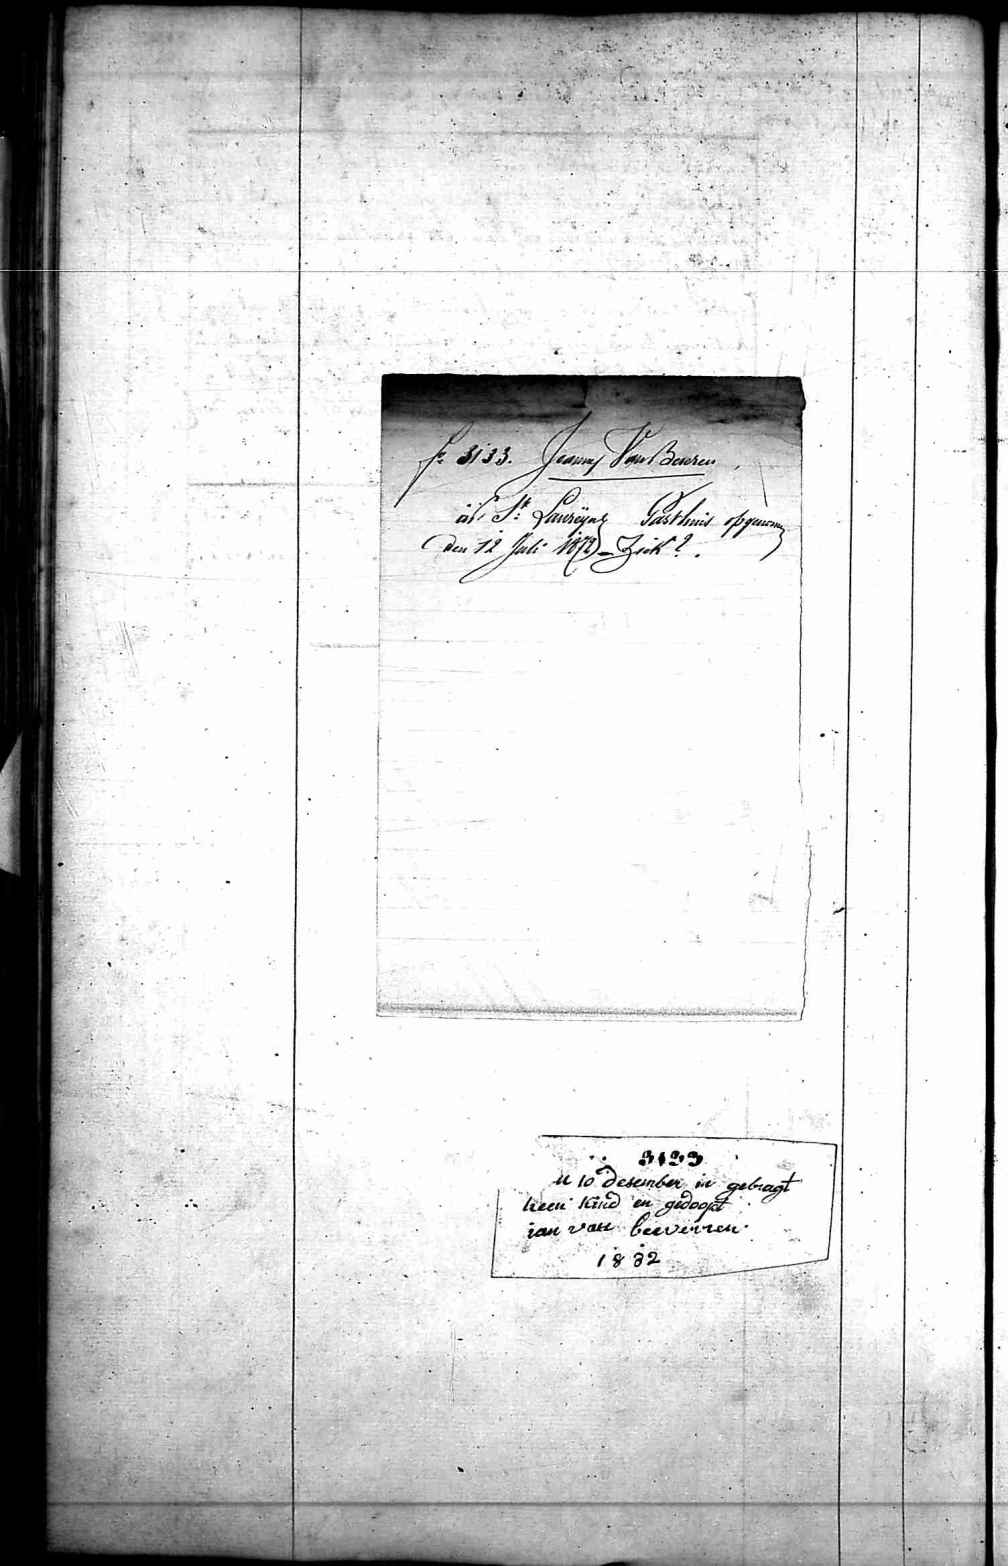 fo 3133. Jeannes Van Beuren
in St Laureijns Gasthuis opgenomen
den 12 Juli 1873 - Ziek ? .
3133
u 10 desember in gebragt
heen kind en gedoopt
ian van beeverren.
1832